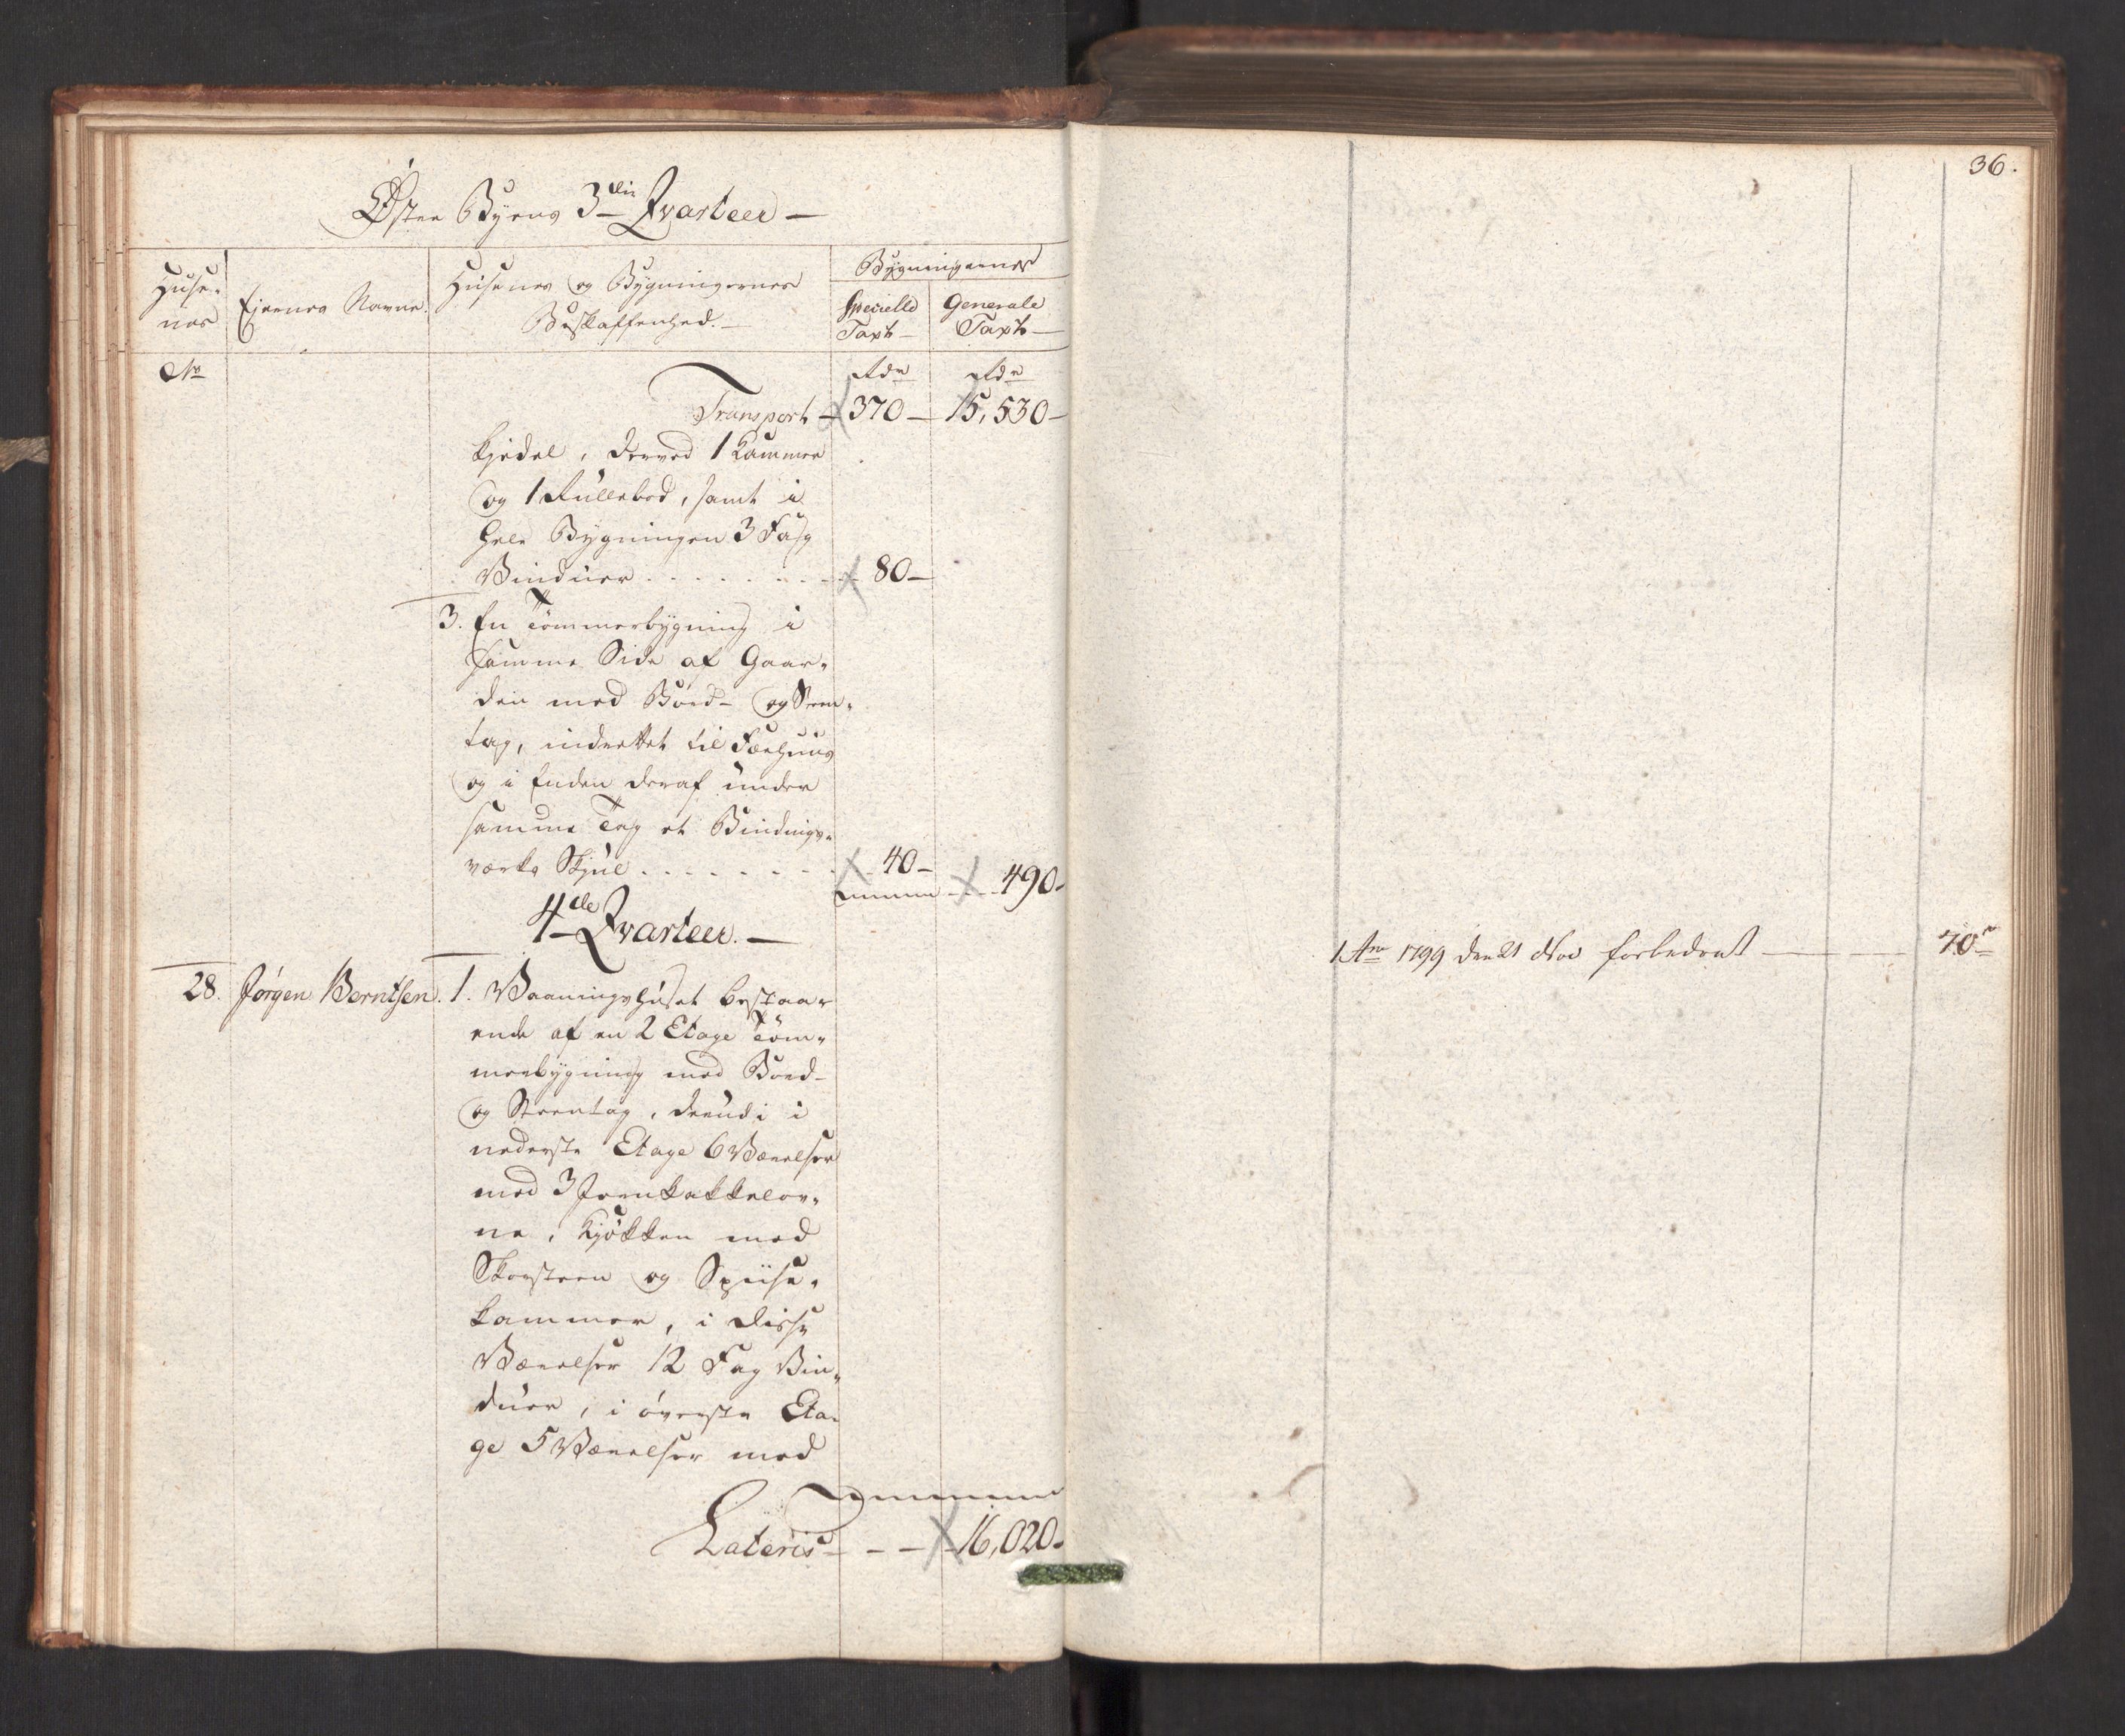 Øster Byens 3die Qvarteer —
Huse-
nes
Ejernes Navne.
Husenes og Bygningernes
Beskaffenhed. —
Bygningernes
Specielle
Taxt —
Generale
Taxt —
No
Rdr
Rdr
Transport — 370 — 15,530 —
Kjedel, derved 1 Kammer
og 1 Rullebod, samt i
hele Bygningen 3 Fag
Vinduer . . . . . . . . 80 —
3. En Tømmerbygning i
samme Side af Gaar-
den med Bord- og Steen-
tag, indrettet til Fæehuus
og i Enden deraf under
samme Tag et Bindings-
værks Skjul . . . . . . . . 40 —
490 -
4de Qvarteer. —
28. Jørgen Berntsen. 1. Vaaningshuset bestaa-
ende af en 2 Etage Tøm-
merbygning med Bord-
og Steentag, derudi i
nederste Etage 6 Værelser
med 3 Jernkakkelov-
ne, Kjøkken med
Skorsteen og Spiise-
kammer, i disse
Værelser 12 Fag Vin-
duer, i øverste Eta-
ge 5 Værelser med
Lateris — — — 16,020 -
36.
1799 den 21 Nov forbedret — — 70